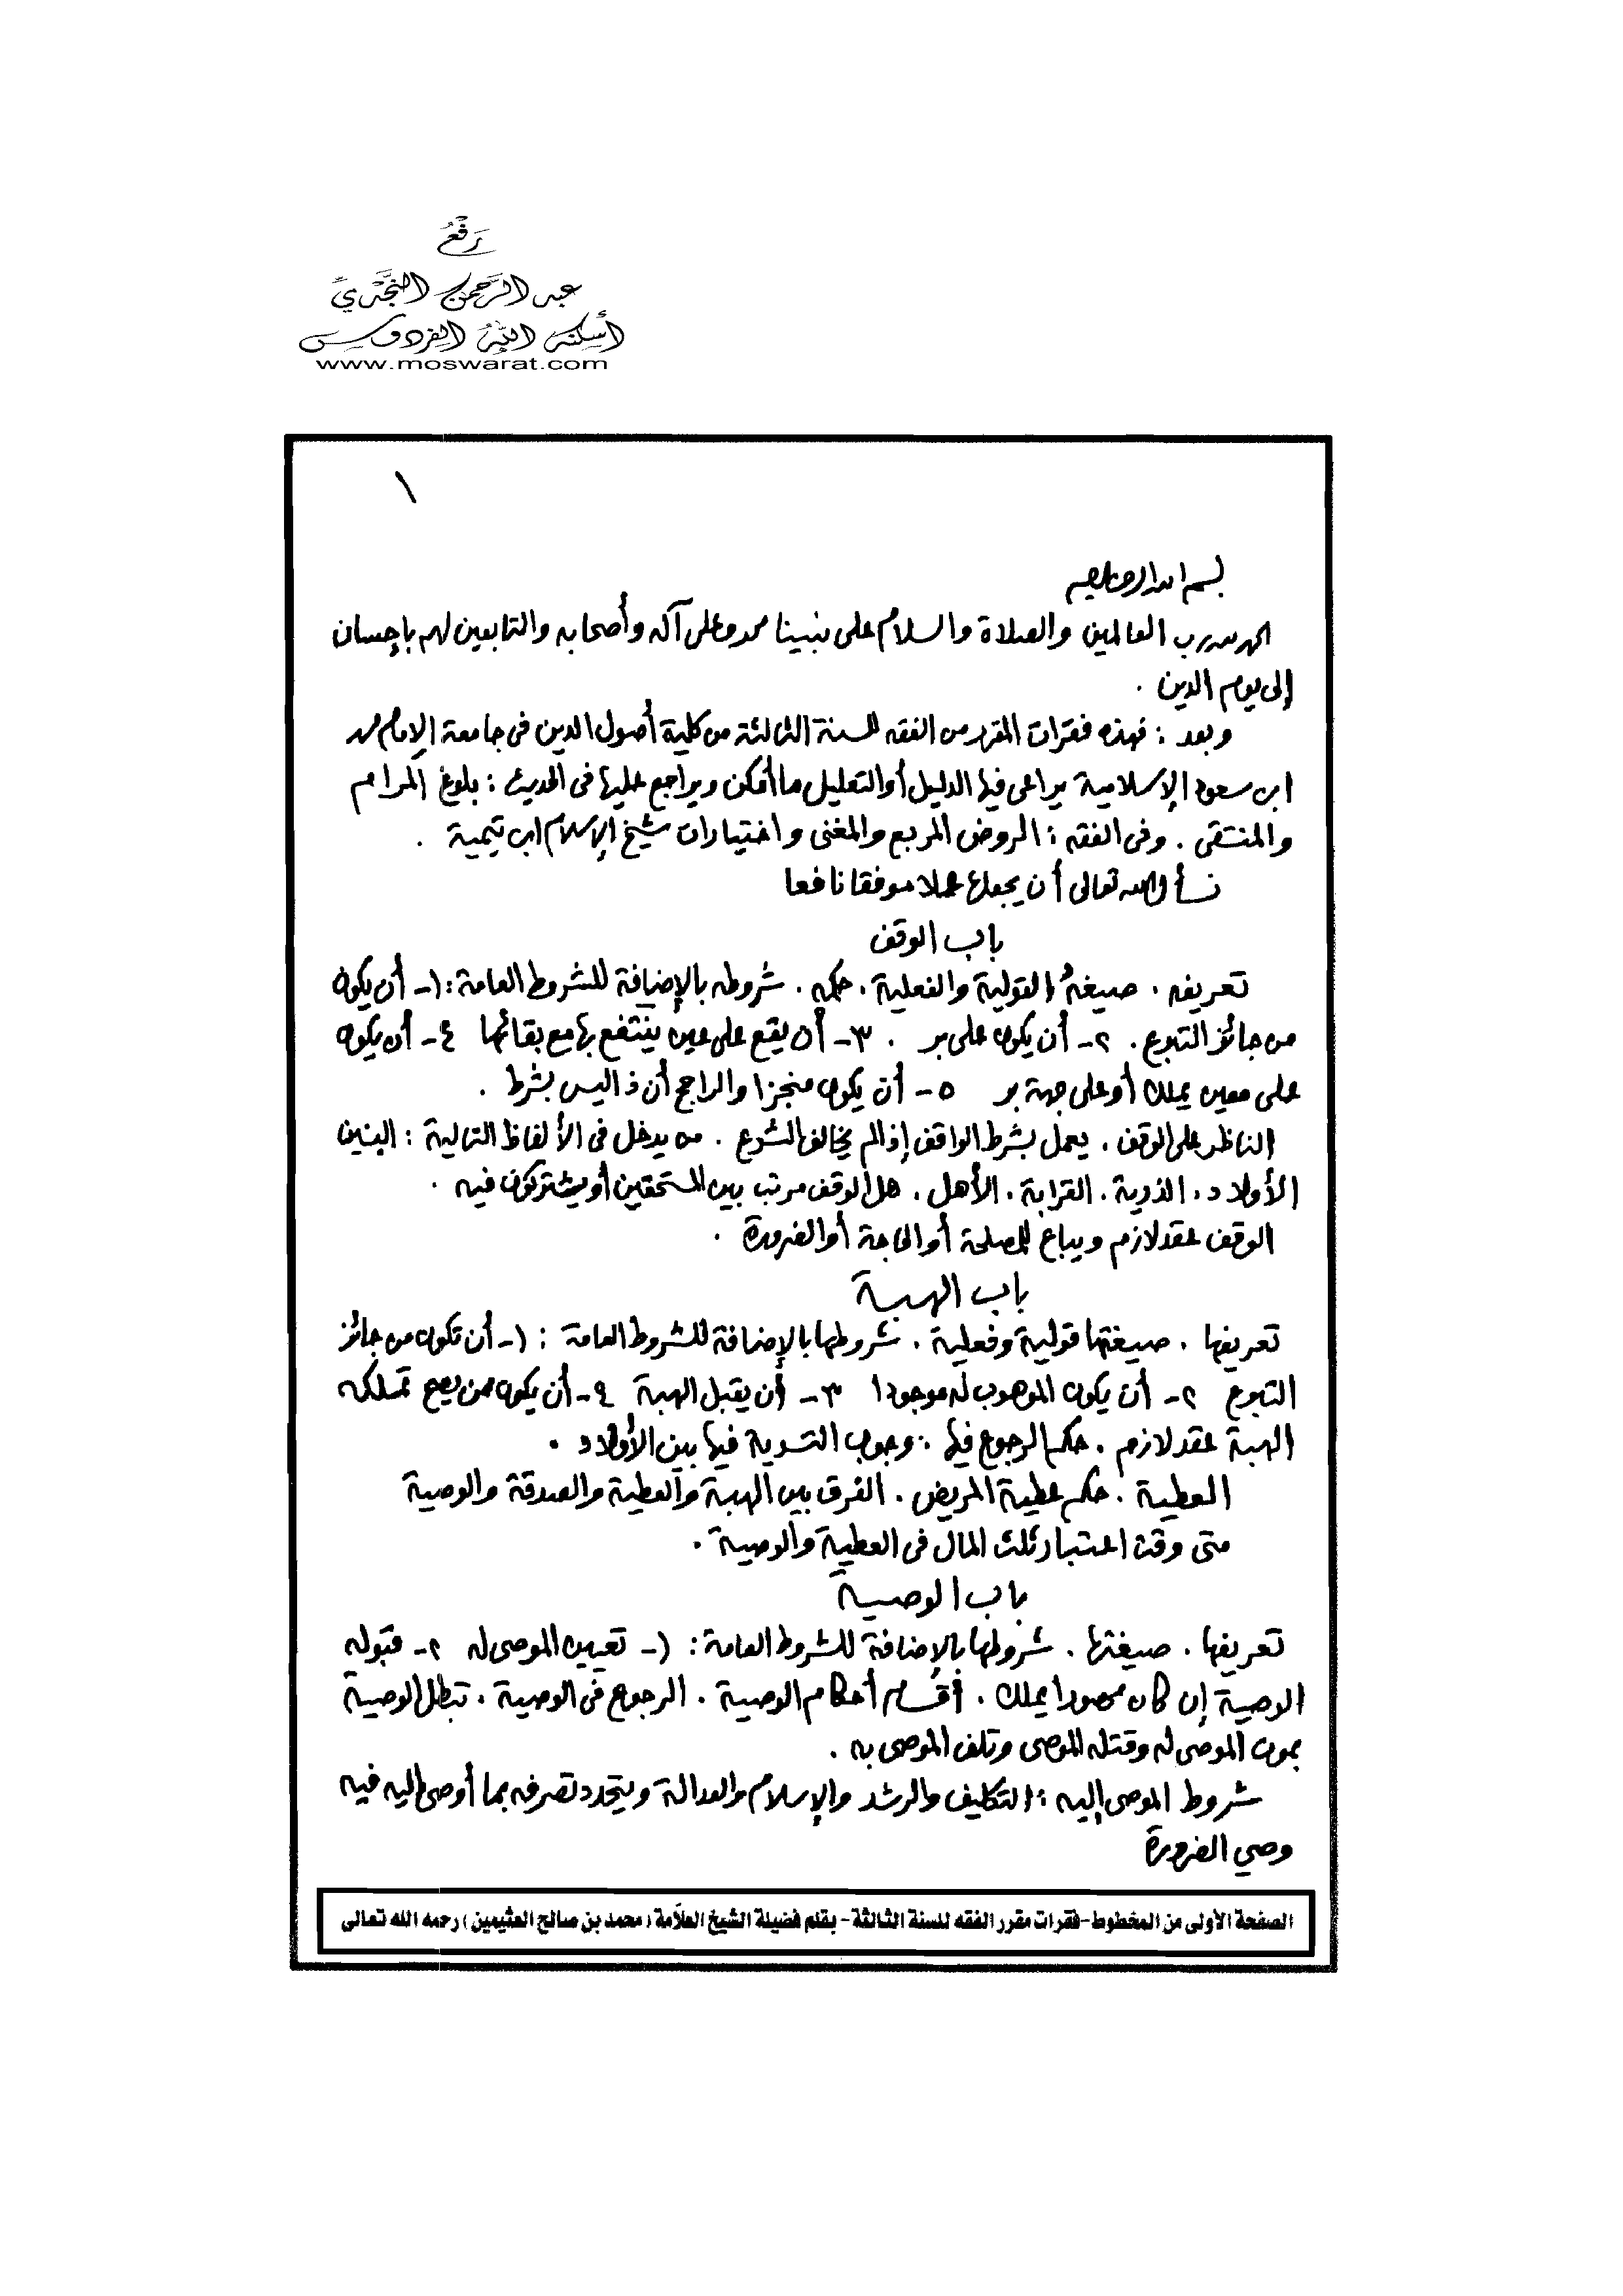 رَفْعُ
عبد الرَّحمن النَّجْديِّ
أسكنه اللهُ الفردوس
www.moswarat.com
١
بسم الله الرحمن الرحيم
الحمد لله رب العالمين والصلاة والسلام على نبينا محمد وعلى آله وأصحابه والتابعين لهم بإحسان
إلى يوم الدين .
وبعد : فهذه فقرات المقرر من الفقه للسنة الثالثة من كلية أصول الدين في جامعة الإمام محمد
ابن سعود الإسلامية يراعى فيها الدليل أو التعليل ما أمكن ويراجع عليها في الحديث : بلوغ المرام
والمنتقى . وفى الفقه : الروض المربع والمغنى واختيارات شيخ الإسلام ابن تيمية .
نسأل الله تعالى أن يجعله عملا موفقا نافعا
باب الوقف
تعريفه . صيغهُ القولية والفعلية . حكمه . شروطه بالإضافة للشروط العامة : ١- أن يكون
من جائز التبرع . ٢- أن يكون على بر . ٣- أن يقع على عين ينتفع بها مع بقائها ٤- أن يكون
على معين يملك أو على جهة بر ٥- أن يكون منجزا والراجح أن ذا ليس بشرط .
الناظر على الوقف . يعمل بشرط الواقف إذا لم يخالف الشرع . من يدخل في الألفاظ التالية : البنين
الأولاد . الذرية . القرابة . الأهل . هل الوقف مرتب بين المستحقين أو يشتركون فيه .
الوقف عقد لازم ويباع للمصلحة أو الحاجة أو الضرورة .
باب الهبة
تعريفها . صيغتها قولية وفعلية . شروطها بالإضافة للشروط العامة : ١- أن تكون من جائز
التبرع ٢- أن يكون الموهوب له موجودا ٣- أن يقبل الهبة ٤- أن يكون ممن يصح تملكه
الهبة عقد لازم . حكم الرجوع فيها . وجوب التسوية فيها بين الأولاد .
العطية . حكم عطية المريض . الفرق بين الهبة والعطية والصدقة والوصية
متى وقت اعتبار ثلث المال في العطية والوصية .
باب الوصية
تعريفها . صيغتها . شروطها بالإضافة للشروط العامة : ١- تعيين الموصى له ٢- قبوله
الوصية إن كان محصورا يملك . أقسام أحكام الوصية . الرجوع في الوصية . تبطل الوصية
بموت الموصى له وقتله للموصى وتلف الموصى به .
شروط الموصى إليه : التكليف والرشد والإسلام والعدالة ويتحدد تصرفه بما أوصى إليه فيه
وصي الضرورة
الصفحة الأولى من المخطوط-فقرات مقرر الفقه للسنة الثالثة- بقلم فضيلة الشيخ العلاّمة (محمد بن صالح العثيمين) رحمه الله تعالى